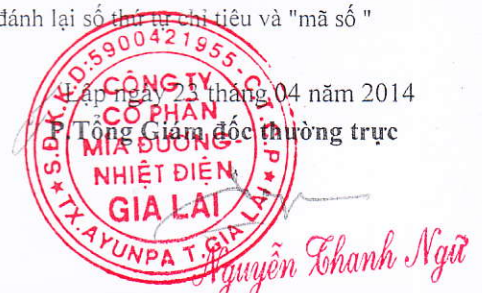 đánh lại số thứ tự chỉ tiêu và "mã số "
Lập ngày 23 tháng 04 năm 2014
P.Tổng Giám đốc thường trực
S.Đ.K.K.D:5900421955-C.T.C.P
CÔNG TY
CỔ PHẦN
MÍA ĐƯỜNG-
NHIỆT ĐIỆN
GIA LAI
TX.AYUNPA T.GIA LAI
Nguyễn Thanh Ngữ